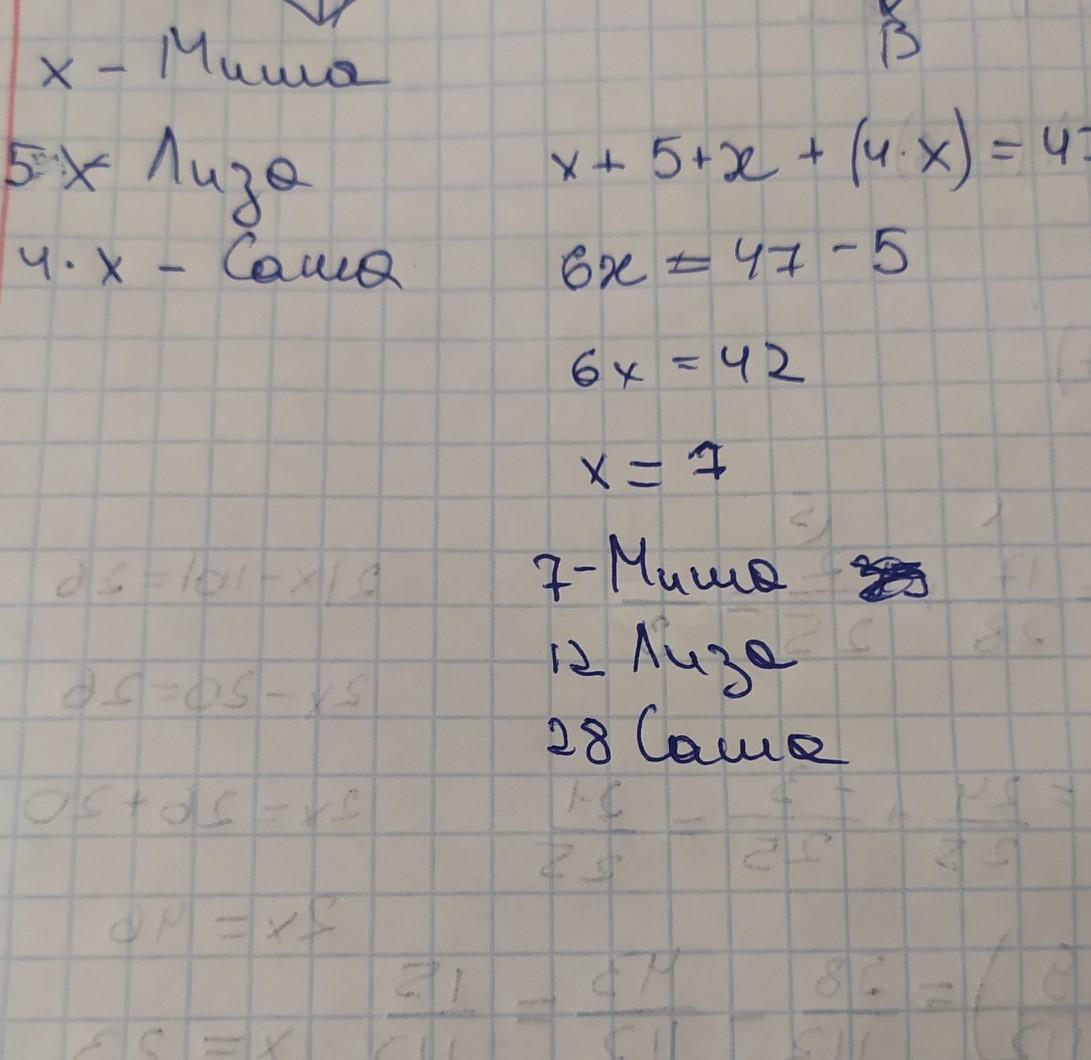 В
x - Миша
5 x Лиза
4 · x - Саша
x + 5 + x + (4 · x) = 47
6x = 47 - 5
6x = 42
x = 7
7 - Миша
12 Лиза
28 Саша